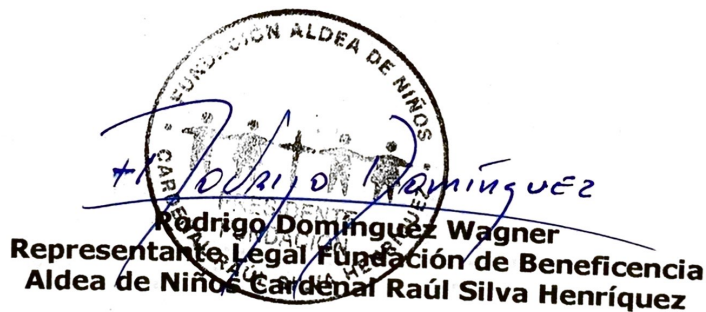 FUNDACIÓN ALDEA DE NIÑOS
CARDENAL RAÚL SILVA HENRIQUEZ
PRESIDENTE
FUNDACIÓN
Rodrigo Domínguez
Rodrigo Domínguez Wagner
Representante Legal Fundación de Beneficencia
Aldea de Niños Cardenal Raúl Silva Henríquez